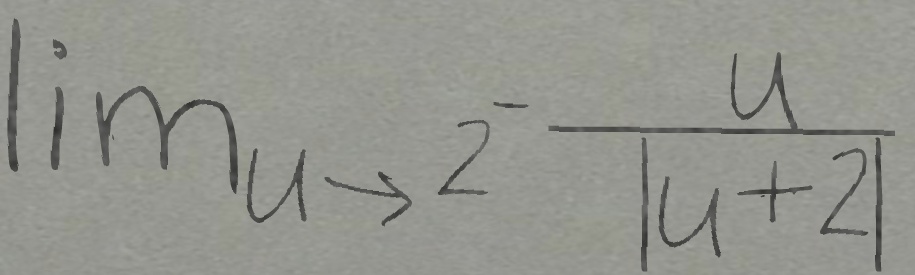 lim_{u→2^-} \frac{u}{|u+2|}